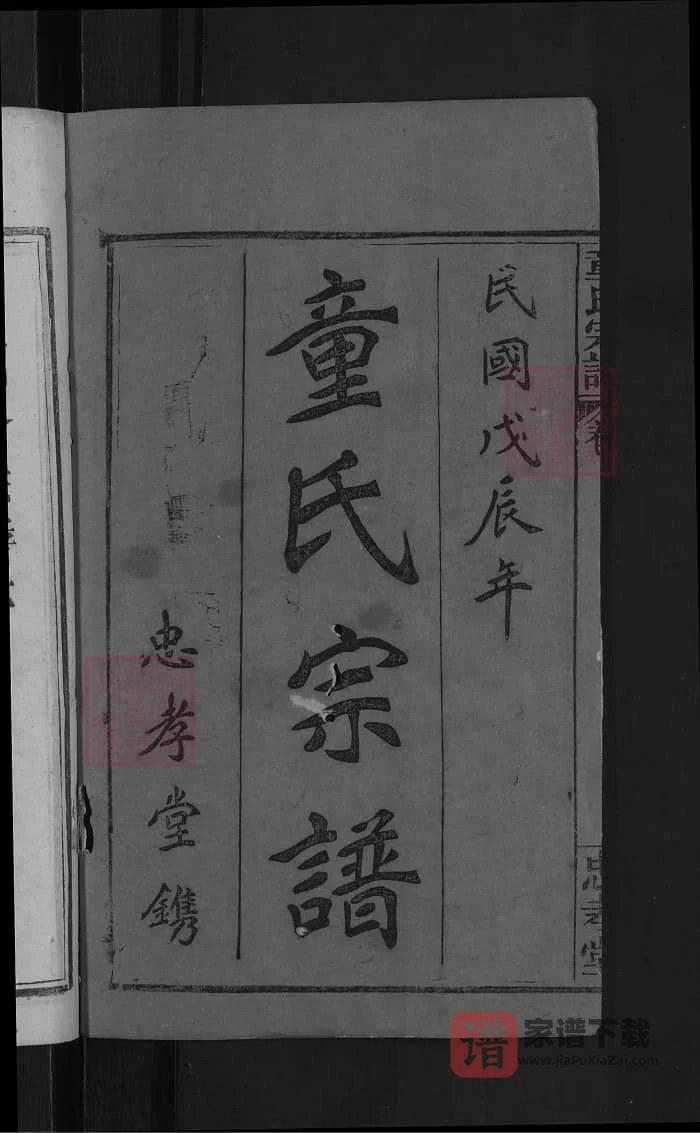 民國戊辰年
童氏宗譜
忠孝堂鐫
童氏宗譜
卷
忠孝堂
谱 家谱下载
www.JiaPuXiaZai.com